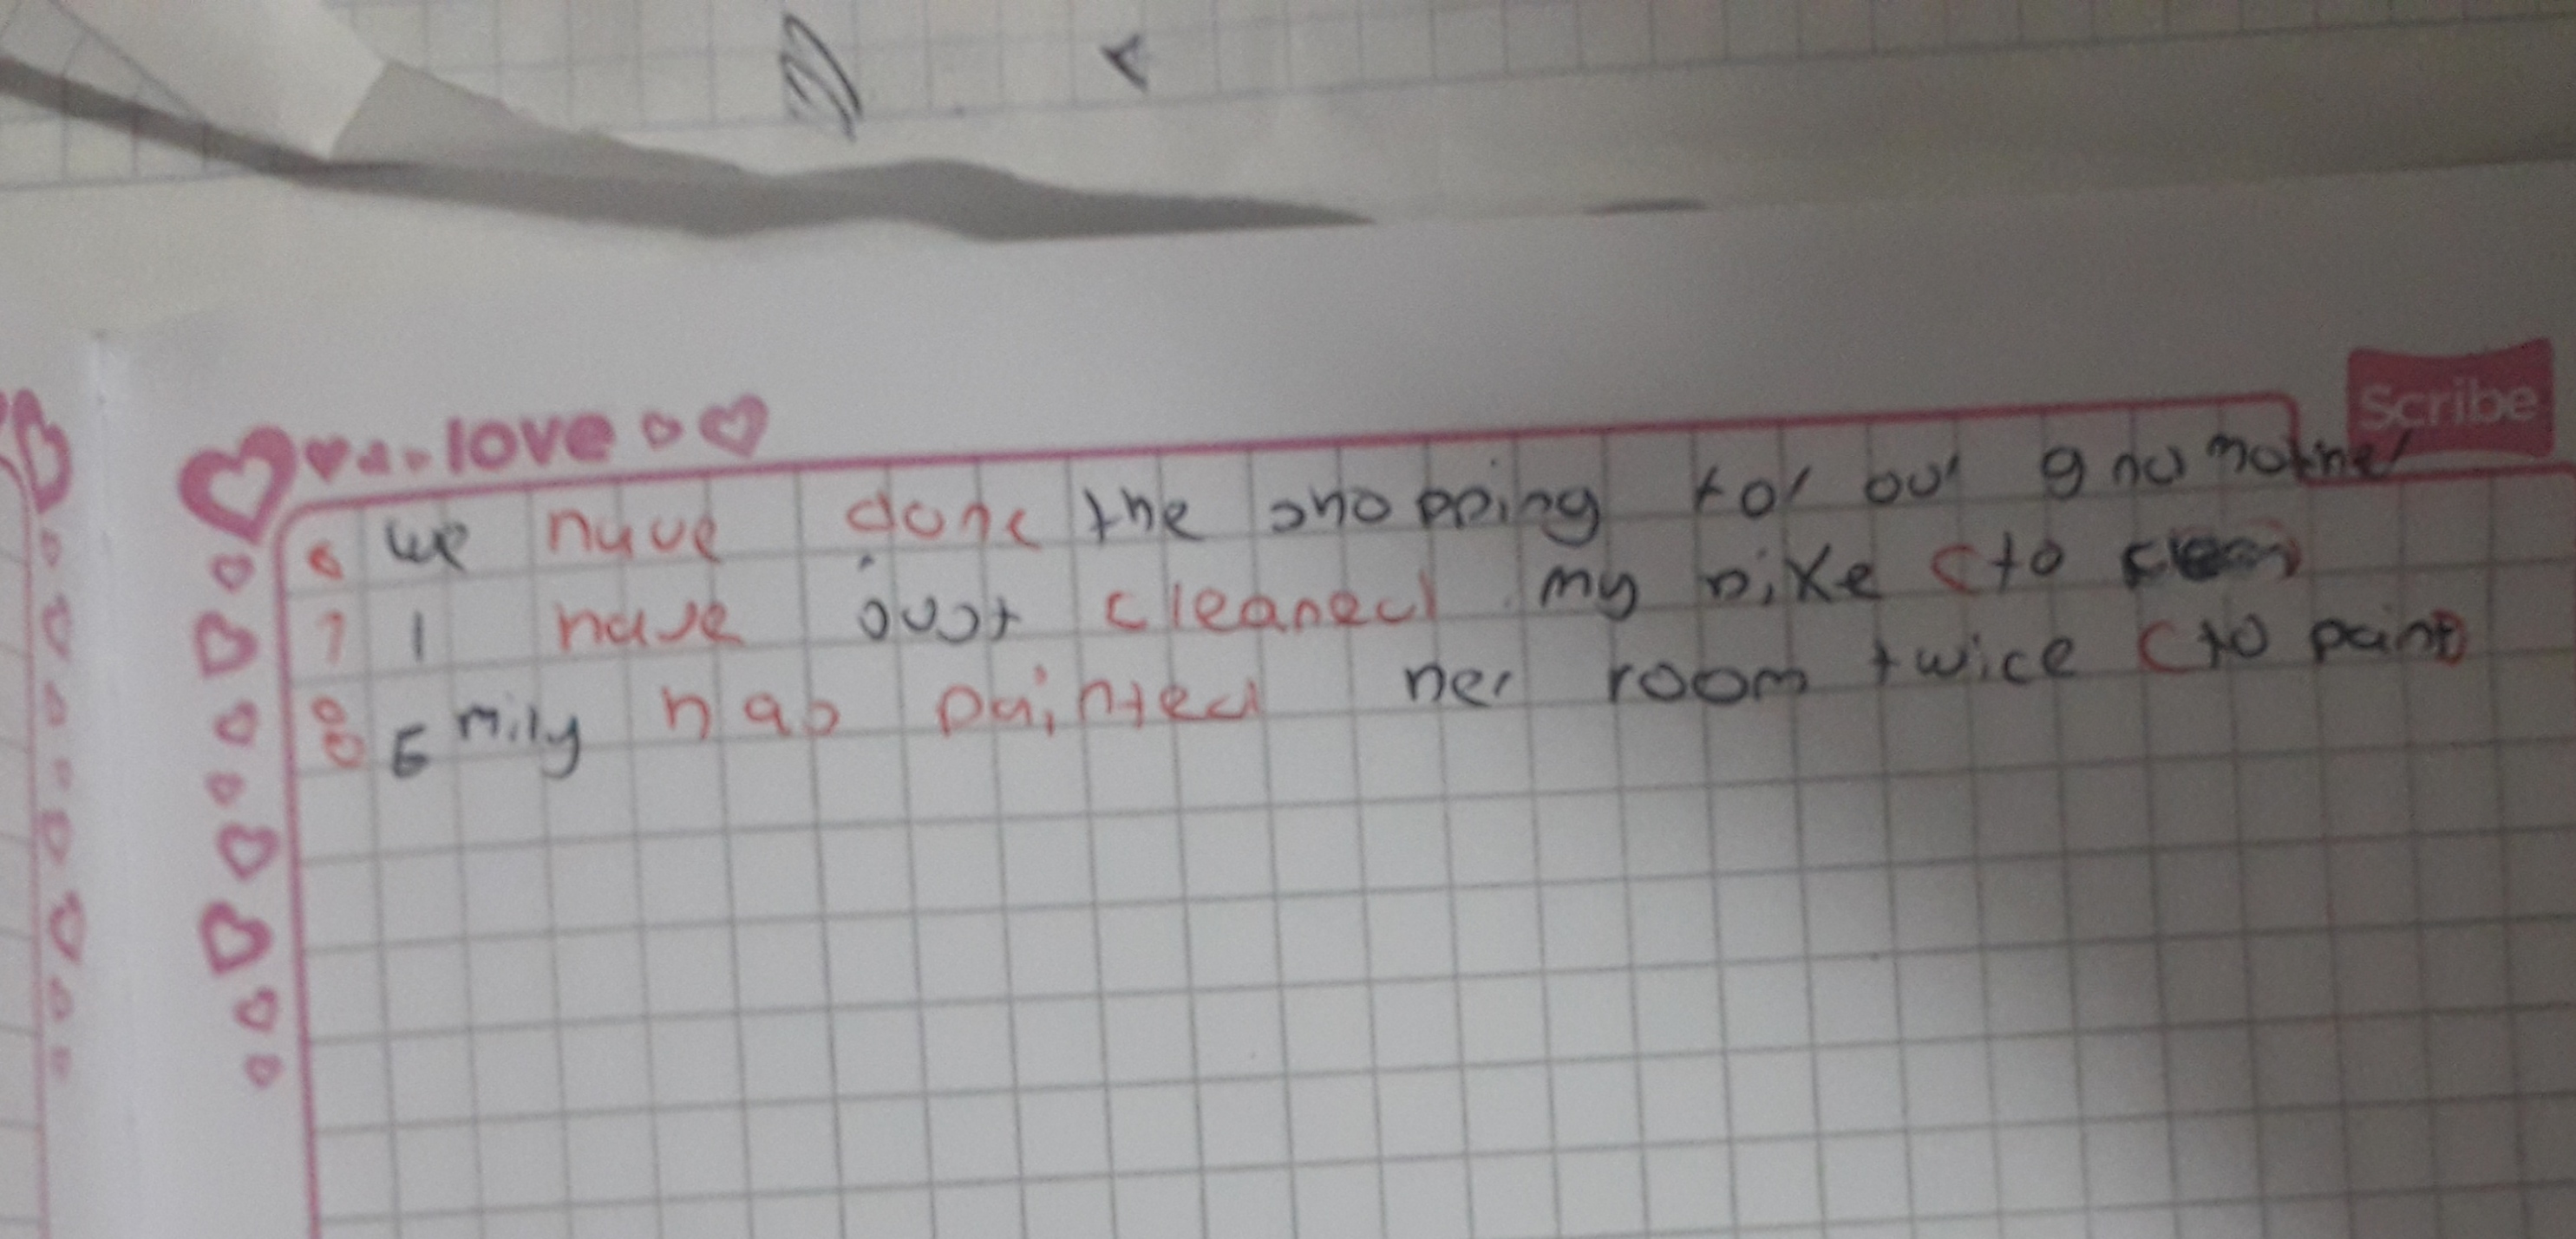 love
Scribe
6 we have done the shopping for our
7 I have just cleaned my bike (to clean)
8 Emily has painted her room twice (to paint)